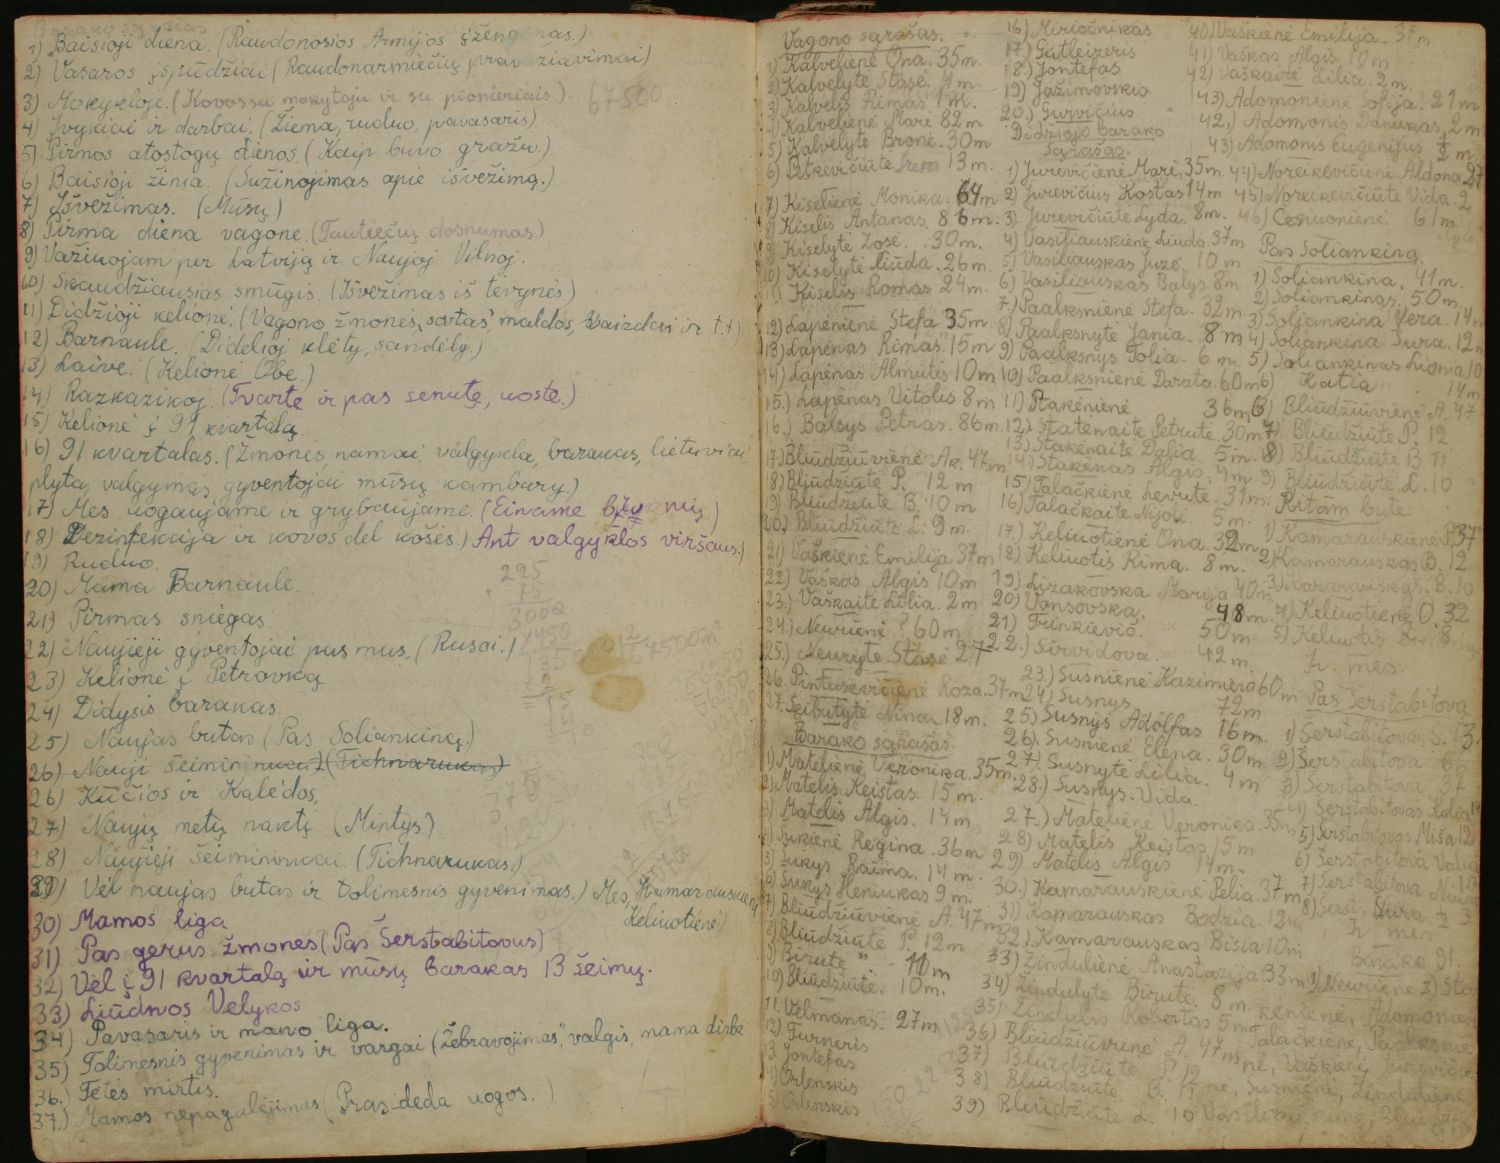 1) Baisioji diena. (Raudonosios Armijos įžengimas.)
2) Vasaros įspūdžiai (Raudonarmiečių pravažiavimai)
3) Mokykloje. (Kovos su mokytoju ir su pionieriais). 67500
4) Įvykiai ir darbai. (Žiema, ruduo, pavasaris)
5) Pirmos atostogų dienos. (Kaip buvo gražu.)
6) Baisioji žinia. (Sužinojimas apie išvežimą.)
7) Išvežimas. (Mūsų.)
8) Pirma diena vagone. (Tautiečių dosnumas.)
9) Važiuojam per Latviją ir Naujoj Vilnoj.
10) Skaudžiausias smūgis. (Išvežimas iš tėvynės)
11) Didžioji kelionė. (Vagono žmonės, maldos, vaizdai ir t.t.)
12) Barnaule. (Didelioj klėty, sandėly.)
13) Laive. (Kelionė Obe.)
14) Razkazikoj. (Tvarte ir pas senutę, uoste.)
15) Kelionė į 91 kvartalą
16) 91 kvartalas. (Žmonės, namai, valgykla, barakas, lietuviai,
plyta, valgymas, gyventojai mūsų kambary.)
17) Mes uogaujame ir grybaujame. (Einame
18) Dezinfekcija ir kovos dėl košės.) Ant valgyklos viršaus.)
19) Ruduo.
20) Mama Barnaule.
21) Pirmas sniegas.
22) Naujieji gyventojai pas mus. (Rusai.)
23) Kelionė į Petrovką
24) Didysis barakas.
25) Naujas butas (Pas Soliankiną.)
26) Nauji šeimininkai) (Tichnarukas)
26) Kūčios ir Kalėdos.
27) Naujų metų naktį. (Mintys)
28) Naujieji šeimininkai. (Tichnarukas.)
29) Vėl naujas butas ir tolimesnis gyvenimas.) Mes, Kamarauskienė
Keliuotienė)
30) Mamos liga
31) Pas gerus žmones (Pas Šerstabitovus)
32) Vėl į 91 kvartalą ir mūsų barakas 13 šeimų.
33) Liūdnos Velykos
34) Pavasaris ir mano liga.
35) Tolimesnis gyvenimas ir vargai (Žebravojimas", valgis, mama dirba
36.) Tėtės mirtis.
37.) Mamos nepagalėjimas (Prasideda uogos.)
225
75
3000
x450
Vagono sąrašas.
1) Kalvelienė Ona. 35m.
2) Kalvelytė Stasė. 4m.
3) Kalvelis Rimas 1 m.
4) Kalvelienė Marė 82m
5) Kalvelytė Bronė. 30m
6) Petkevičiūtė Irena 13m.
7) Kiselienė Monika. 64m
8) Kiselis Antanas. 86m.
9) Kiselytė Zosė. 30m.
10) Kiselytė Liūda. 26m.
11) Kiselis Romas 24m.
12) Lapėnienė Stefa 35m.
13) Lapėnas Rimas. 15m
14) Lapėnas Almutis 10m
15.) Lapėnas Vitolis 8m
16.) Balsys Petras. 86m.
17) Bliūdžiuvienė Ak. 47m
18) Bliūdžiūtė P. 12 m
19) Bliūdžiūtė B. 10m
20.) Bliūdžiūtė L. 9 m.
21) Vaškienė Emilija 37m
22) Vaškas Algis 10m
23.) Vaškaitė Lilia. 2m
24) Neurienė ? 60m
25.) Neurytė Stasė 27
26. Pintusevičienė Roza. 37m
27. Seibutytė Nina. 18m.
Barako sąrašas.
1) Matelienė Veronika 35m.
2) Matelis Keistas. 15m.
3) Matelis Algis. 14m.
4) Sukienė Regina. 36m
5) Sukys Raima. 14m.
6) Sukys Heniukas 9m.
7) Bliūdžiuvienė A. 47m
8) Bliūdžiūtė P. 12m
9) Birutė " - 10m
10) Bliūdžiūtė. 10m.
11. Velmanas. 27m
12) Furneris
13. Jontefas
14) Orlenskis
15) Orlenskis
16) Miriočnikas
17) Gutleizeris
18.) Jontefas
19) Jazimovskis
20.) Gurvičius
Didžiojo barako
sąrašas.
1) Jurevičienė Marė, 35m.
2) Jurevičius Kostas 14m
3) Jurevičiūtė Lyda. 8m.
4) Vasiliauskienė Liuda. 37m
5) Vasiliauskas Juzė. 10m
6) Vasiliauskas Balys. 8m
7) Paalksnienė Stefa. 32m.
8) Paalksnytė Jania. 8m
9) Paalksnys Tolia. 6m.
10) Paalksnienė Darata. 60m
11) Stakėnienė 36m
12) Statėnaitė Petrutė. 30m
13) Stakėnaitė Dalia. 5m.
14) Stakėnas Algis. 4m
15) Talačkienė Levutė. 31m.
16) Talačkaitė Nijolė 5m.
17.) Keliuotienė Ona. 32m
18) Keliuotis Rima. 8m.
19) Lizakovska Marija 40m
20) Vonsovska. 48m.
21) Trinkievič. 50m
22.) Sirvidova. 42m
23.) Susnienė Kazimiera 60m
24) Susnys 72m
25) Susnys Adolfas 16m.
26) Susnienė Elena. 30m.
27) Susnytė Lilia. 4m
28.) Susnys. Vida.
27.) Matelienė Veronika. 35m
28) Matelis Keistas 15m
29) Matelis Algis 14m.
30.) Kamarauskienė Pelia. 37m
31) Kamarauskas Bodzia. 12m
32) Kamarauskas Bisia 10m
33) Žindulienė Anastazija 33m
34) Žindulytė Birutė. 8m.
35) Žindulis Robertas 5m
36) Bliūdžiuvienė A. 47m
37) Bliūdžiūtė P. 12
38) Bliūdžiūtė B.
39) Bliūdžiūtė L. 10
40) Vaškienė Emilija. 37m
41) Vaškas Algis 10m
42) Vaškaitė Lilia. 2m.
43) Adomonienė Sofija. 21m
42.) Adomonis Danukas 2m.
43) Adomonis Eugenijus ½ m
44) Noreikevičienė Aldona 27
45) Noreikevičiūtė Vida. 2
46) Česnuonienė. 61m.
Pas Soliankiną.
1) Soliankina. 41m.
2) Soliankinas. 50m.
3) Soliankina Vera. 14m
4) Soliankina Šura. 12m
5) Soliankinas Lionia 10
6) Katia 14m.
6) Bliūdžiuvienė A. 47
7) Bliūdžiūtė P. 12
8) Bliūdžiūtė B. 11
9) Bliūdžiūtė L. 10
Ritam bute.
1) Kamarauskienė P. 37
2) Kamarauskas B. 12
3) Kamarauskas. B. 10
4) Keliuotienė O. 32
5) Keliuotis R. 8.
k. mes.
Pas Šerstabitova
1) Šerstabitovas S. 73.
2) Šerstabitova
3) Šerstabitova 37
4) Šerstabitovas Kolia
5) Šerstabitovas Miša 12
6) Šerstabitova
7) Šerstabitova Niura
8) Šerst. Šura. ½
h mes
Barako 91.
1) Neurienė 2)
Adomonienė
Talačkienė, Paalksnienė
Vaškienė, Jurevičienė
Susnienė, Žindulienė